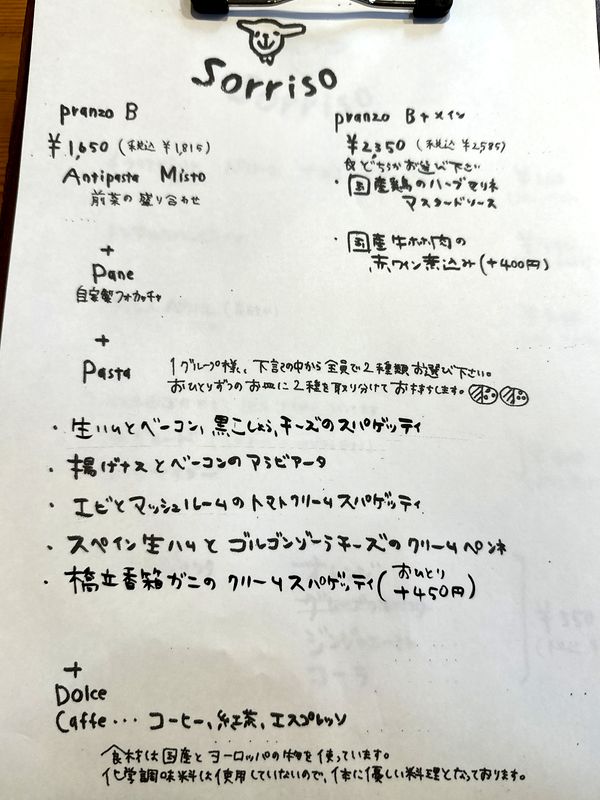 Sorriso
pranzo B
¥1,650 (税込 ¥1,815)
Antipasta Misto
前菜の盛り合わせ
+
Pane
自家製フォカッチャ
pranzo B+メイン
¥2,350 (税込 ¥2585)
どちらかお選び下さい
・国産鶏のハーブマリネ
マスタードソース
・国産牛ホホ肉の
赤ワイン煮込み(+400円)
+
Pasta
1グループ様、下記の中から全員で2種類お選び下さい。
おひとりずつのお皿に2種を取り分けてお持ちします。
・生ハムとベーコン、黒こしょう、チーズのスパゲッティ
・揚げナスとベーコンのアラビアータ
・エビとマッシュルームのトマトクリームスパゲッティ
・スペイン生ハムとゴルゴンゾーラチーズのクリームペンネ
・橋立香箱ガニのクリームスパゲッティ(おひとり
+450円)
+
Dolce
Caffe・・・コーヒー、紅茶、エスプレッソ
食材は国産とヨーロッパの物を使っています。
化学調味料は使用していないので、体に優しい料理となっております。